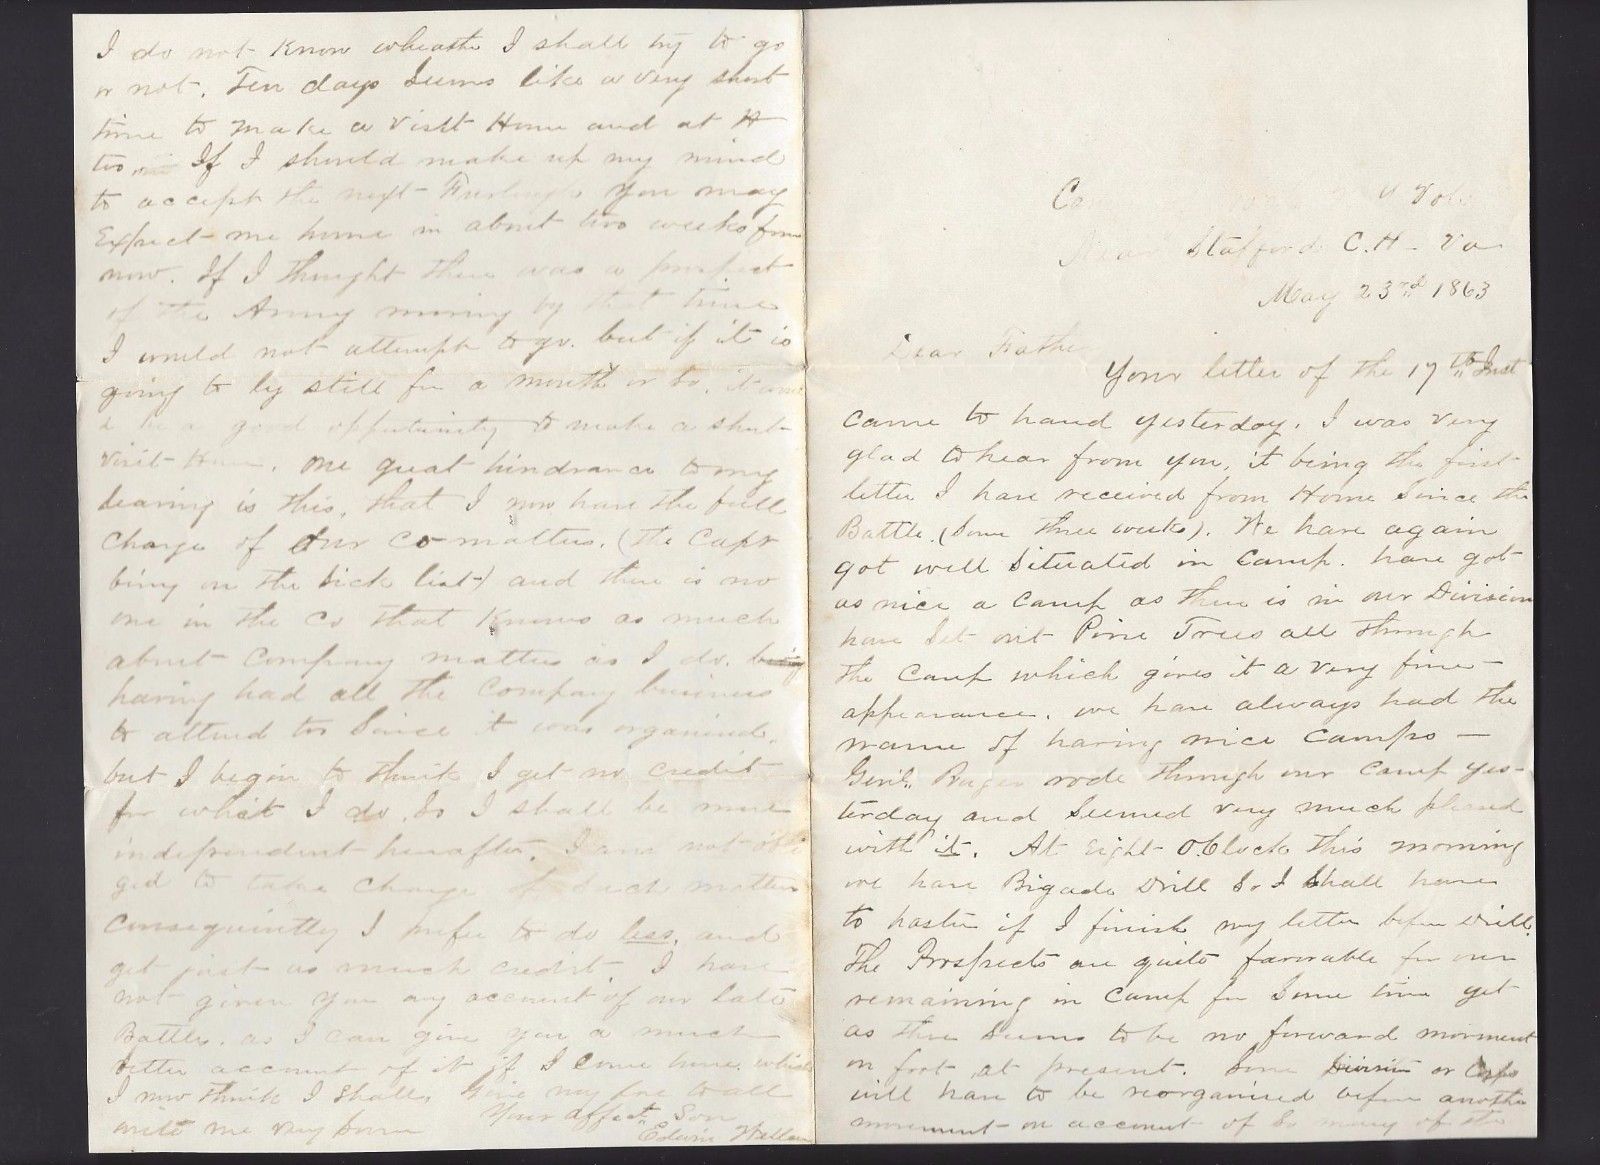 Vols
Near Stafford C.H. Va
May 23rd 1863
Dear Father
Your letter of the 17th Inst
came to hand yesterday. I was very
glad to hear from you, it being the first
letter I have received from Home Since the
Battle. (Some three weeks). We have again
got well Situated in Camp. have got
as nice a camp as there is in our Division
have Set out Pine Trees all through
the Camp which gives it a very fine
appearance. we have always had the
name of having nice Camps —
Genl. Ruger rode through our Camp yes-
terday and Seemed very much pleased
with it. At Eight O.Clock this morning
we have Bigade Drill So I Shall have
to hasten if I finish my letter before Drill.
The Prospects are quite favorable for our
remaining in Camp for Some time yet
as there Seems to be no forward movment
on foot at present. Some Division or Corps
will have to be reorganised before another
movement on account of So many of the
I do not Know wheathe I shall try to go
or not. Ten days Seems like a very short
time to make a visit Home and at
too If I should make up my mind
to accept the next Furlough you may
Expect me home in about two weeks from
now. If I thought there was a prospect
of the Army moving by that time
I would not attempt to go. but if it is
going to ly still for a month or so, it
be a good oppertunity to make a short
visit Home. One great hindrance to my
leaving is this, that I now have the full
Charge of Our Co matters. (the Capt
being on the Sick list) and there is no
one in the Co that Knows as much
about Company matters as I do. being
having had all the Company business
to attend to Since it was organised.
but I begin to think I get no credit
for what I do. So I shall be more
independent hereafter. I am not obli
ged to take charge of Such matters
Consequintly I prefer to do less, and
get just as much credit. I have
not given you any account of our late
Battle. as I can give you a much
better account of it if I come home. which
I now think I shall. Give my love to all
write me very soon
Your affect. Son
Edwin